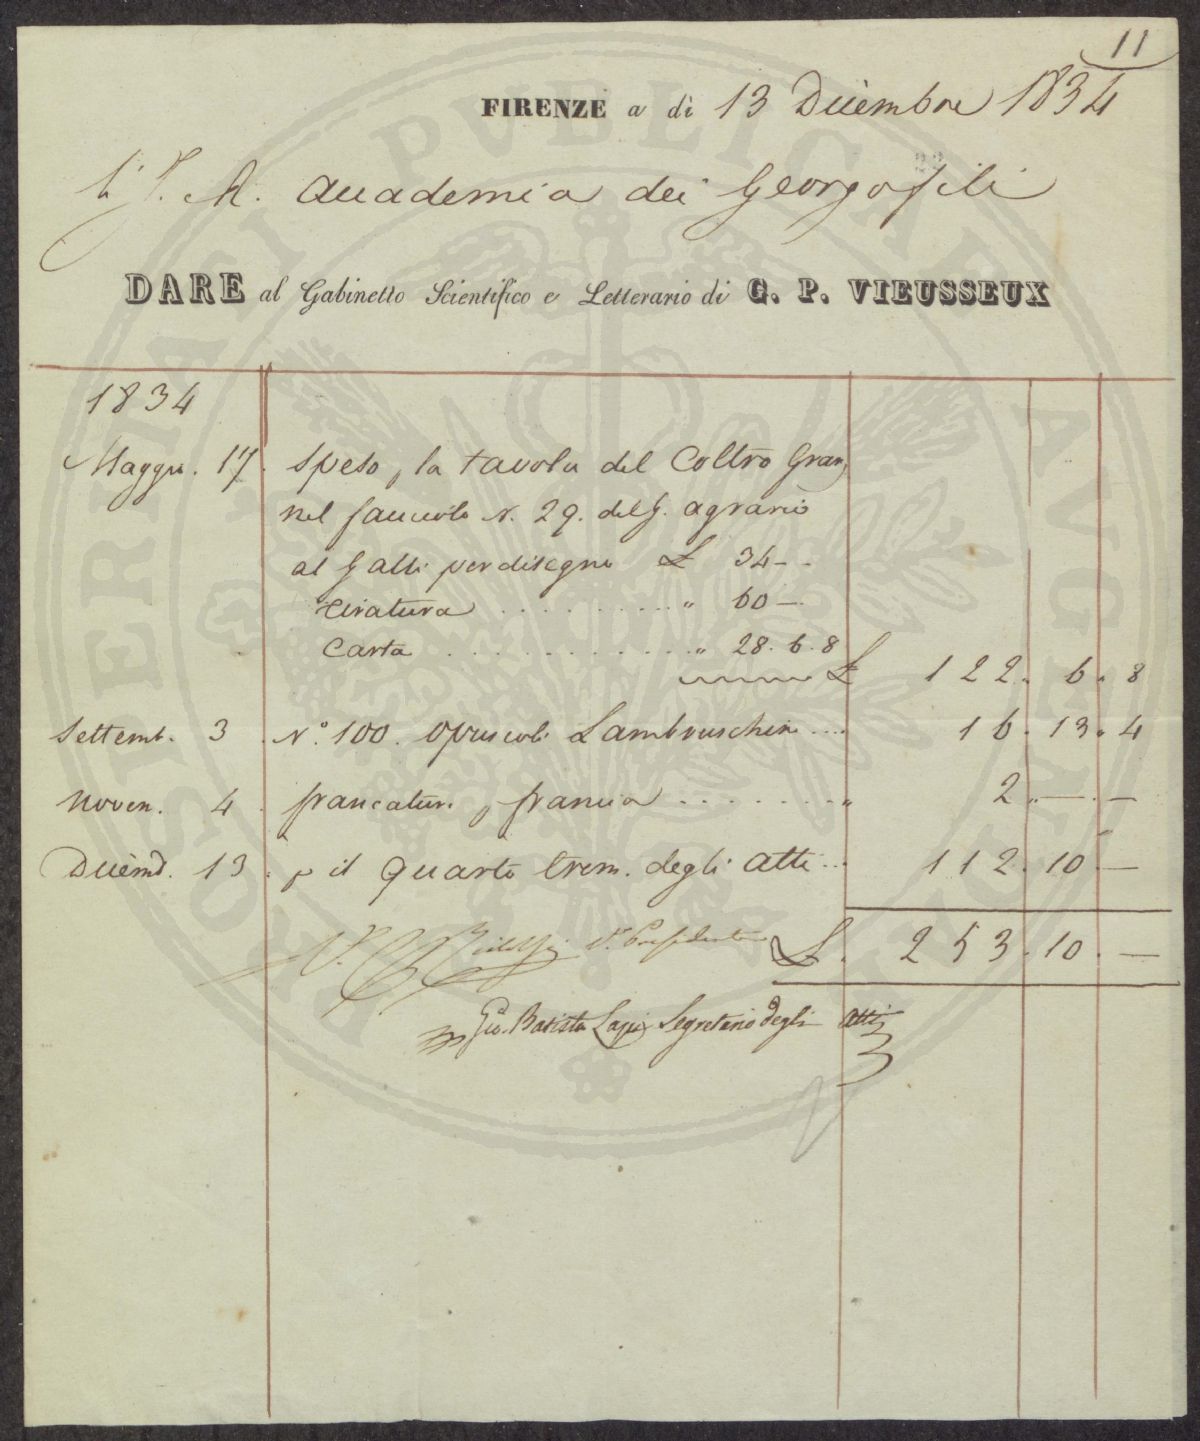 11
FIRENZE a dì 13 Dicembre 1834
L'I. R. Accademia dei Georgofili
DARE al Gabinetto Scientifico e Letterario di G. P. VIEUSSEUX
1834
Maggio. 17. Speso p la tavola del Coltro Gran
nel fascicolo N. 29. del G. agrario
al Galli per disegno £ 34 - -
tiratura . . . . . . . . . " 60 -
Carta . . . . . . . . . . . . " 28. 6. 8
£ 122. 6. 8
Settemb. 3 N.° 100. Opuscoli Lambruschini .... 16. 13. 4
Noven. 4 francature p francia . . . . . . . " 2. — . —
Dicemb. 13 p il quarto trim. degli atti ... 112. 10 . —
V. Presidente £. 253. 10. —
Gio. Batista Lapi Segretario degli Atti